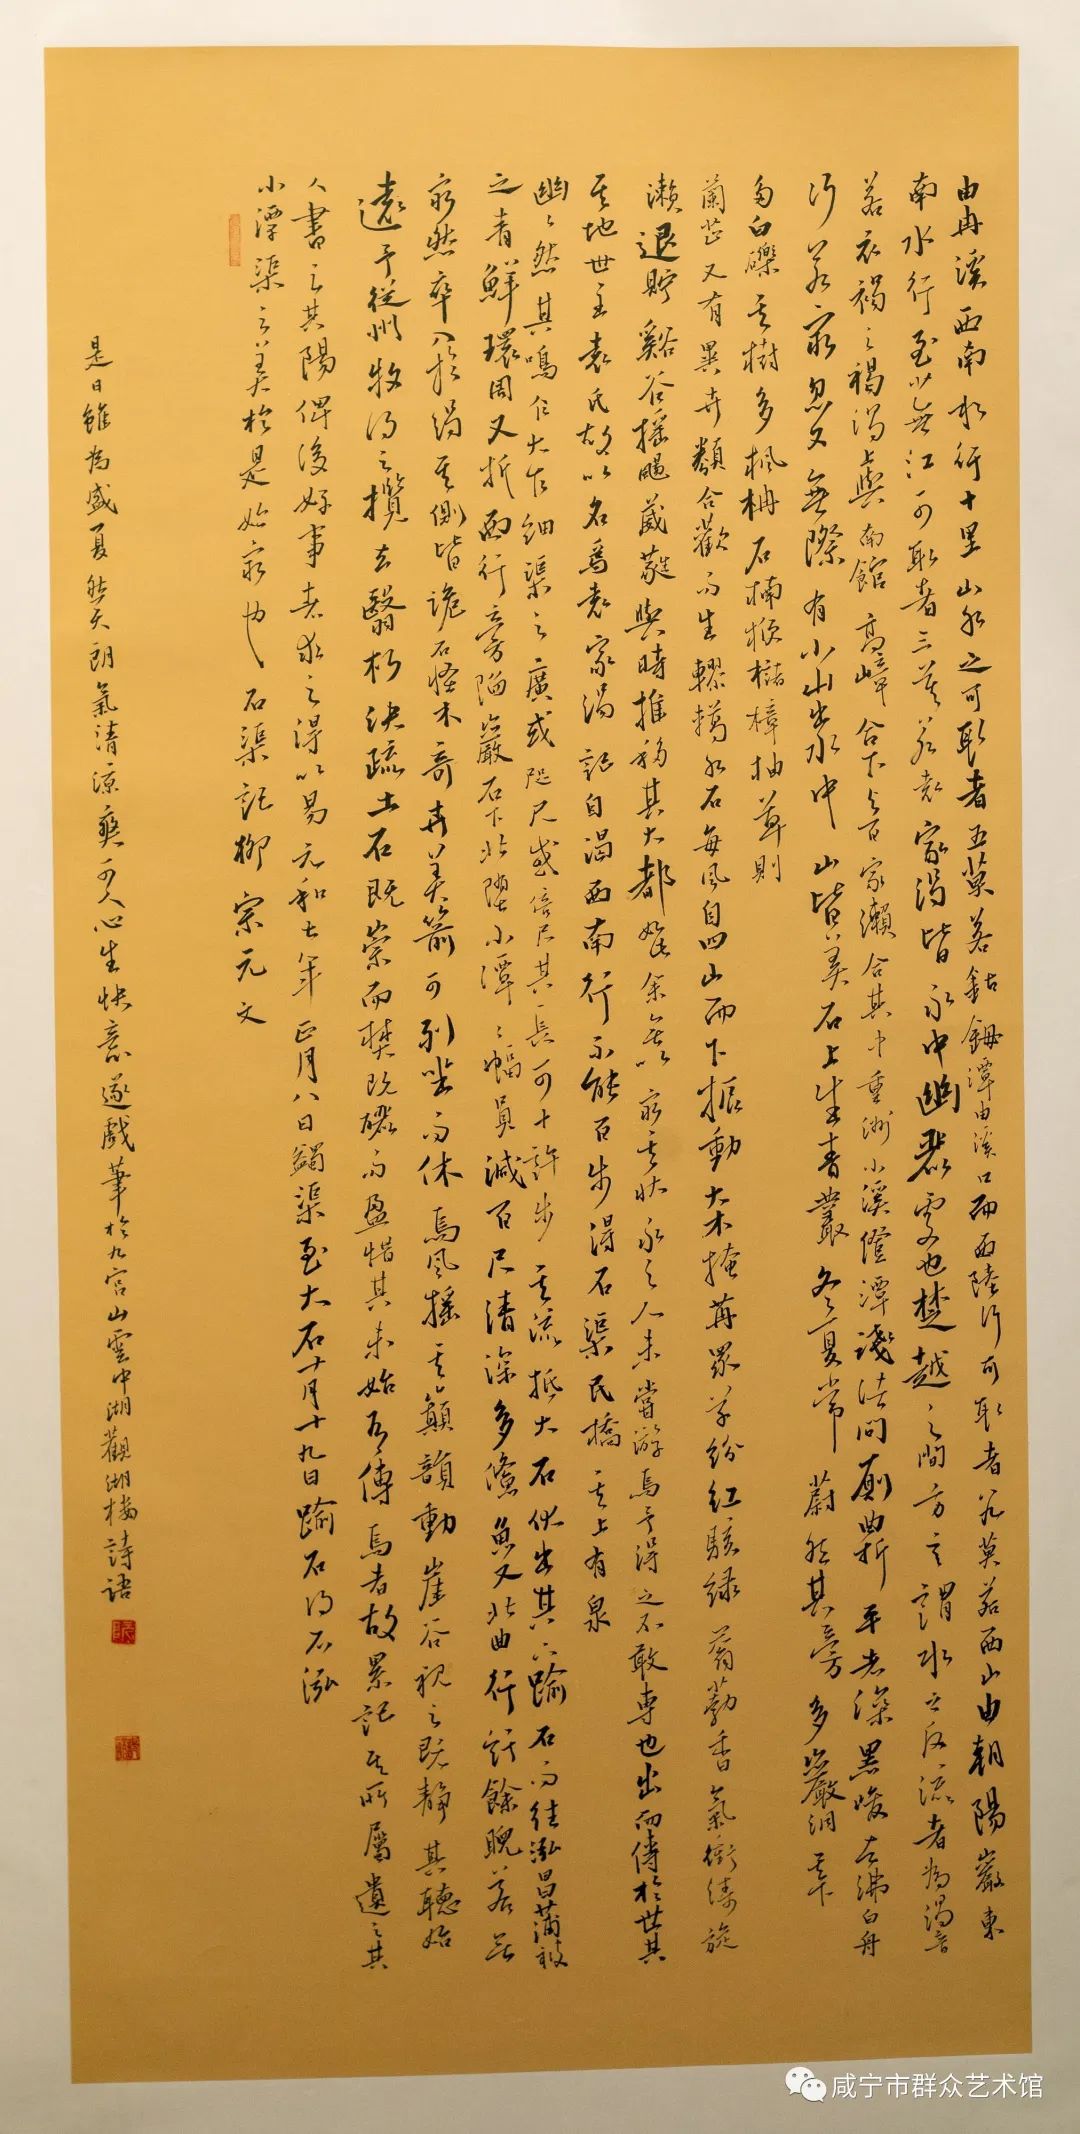 由冉溪西南水行十里山水之可取者五莫若鈷鉧潭由溪口而西陸行可取者八九莫若西山由朝陽巖東
南水行至蕪江可取者三莫若袁家渴皆永中幽麗處也楚越之間方言謂水之反流者為渴音
若衣褐之褐渴上與南館高嶂合下與百家瀨合其中重洲小溪澄潭淺渚間廁曲折平者深黑峻者沸白舟
行若窮忽又無際有小山出水中山皆美石上生青叢冬夏常蔚然其旁多巖洞其下
多白礫其樹多楓柟石楠楩櫧樟柚草則
蘭芷又有異卉類合歡而生轇轕水石每風自四山而下振動大木掩苒眾草紛紅駭綠蓊葧香氣衝濤旋
瀨退貯谿谷搖颺葳蕤與時推移其大都如此余無以窮其狀永之人未嘗游焉予得之不敢專也出而傳於世其
其地世主袁氏故以名焉袁家渴記自渴西南行不能百步得石渠民橋其上有泉
幽幽然其鳴乍大乍細渠之廣或咫尺或倍尺其長可十許步其流抵大石伏出其下踰石而往泓昌蒲被
之青鮮環周又折西行旁陷巖石下北墮小潭潭幅員減百尺清深多鯈魚又北曲行紆餘睨若無
窮然卒入於渴其側皆詭石怪木奇卉美箭可列坐而休焉風搖其巔韻動崖谷視之既靜其聽始
遠予從州牧得之攬去翳朽決疏土石既崇而焚既釃而盈惜其未始有傳焉者故累記其所屬遺之其
人書之其陽俾後好事者求之得以易元和七年正月八日蠲渠至大石十月十九日踰石得石泓
小潭渠之美於是始窮也 石渠記柳宗元文
是日雖為盛夏然天朗氣清涼爽可人心生快意遂戲筆於九宮山雲中湖觀湖樓詩語
咸宁市群众艺术馆